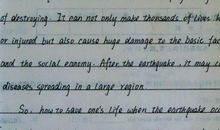 of destroying. It can not only make thousands of lives
or injured but also cause huge damage to the basic fac
and the social economy. After the earthquake, it may c
diseases spreading in a large region.
So, how to save one's life when the earthquake occ